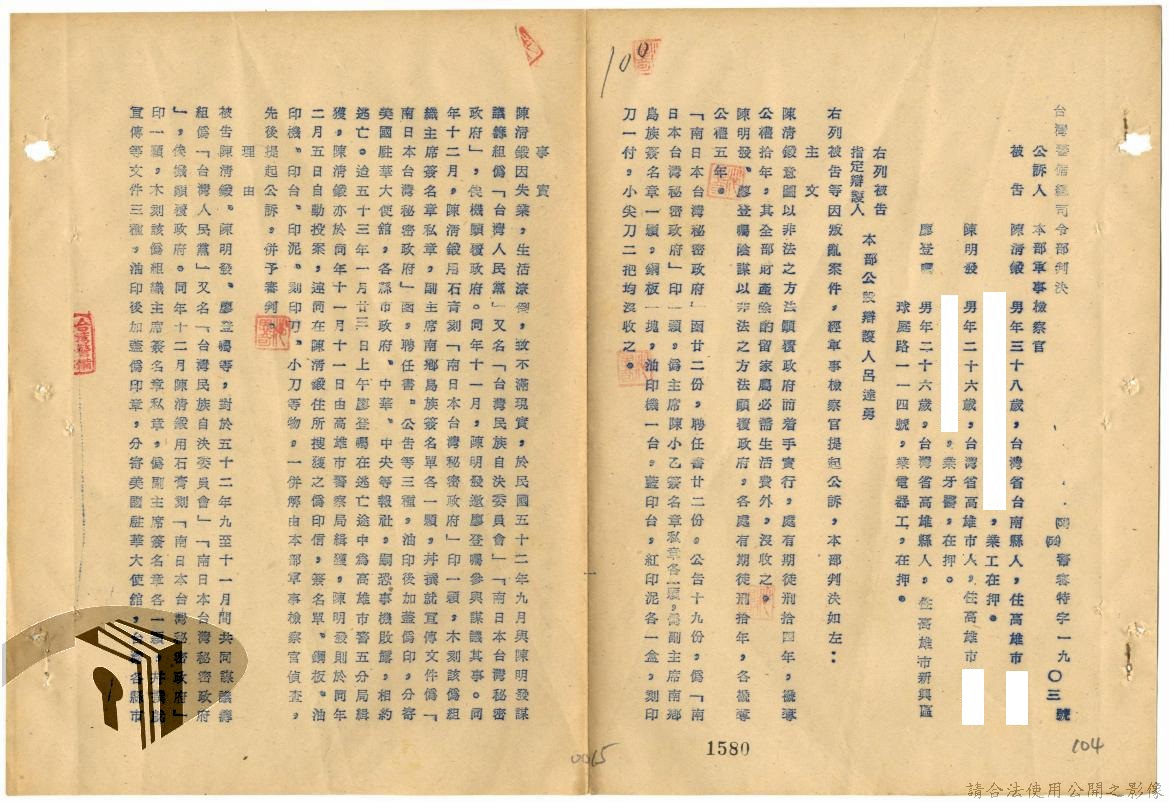 台灣警備總司令部判決
警審特字一九〇三號
公訴人　本部軍事檢察官
被　告　陳清鍛　男年三十八歲，台灣省台南縣人，住高雄市
，業工在押。
陳明發　男年二十六歲，台灣省高雄市人，住高雄市
，業牙醫，在押。
廖登囑　男年二十六歲，台灣省高雄縣人，住高雄市新興區
球庭路一一四號，業電器工，在押。
右列被告
指定辯護人　本部公設辯護人呂達勇
右列被告等因叛亂案件，經軍事檢察官提起公訴，本部判決如左：
主　文
陳清鍛意圖以非法之方法顛覆政府而着手實行，處有期徒刑拾四年，褫奪
公權拾年，其全部財產除酌留家屬必需生活費外，沒收之。
陳明發、廖登囑陰謀以非法之方法顛覆政府，各處有期徒刑拾年，各褫奪
公權五年。
「南日本台灣秘密政府」函廿二份，聘任書廿二份，公告十九份，偽「南
日本台灣秘密政府」印一顆，偽主席陳小乙簽名章私章各一顆，偽副主席南鄉
島族簽名章一顆，鋼板一塊，油印機一台，藍印台，紅印泥各一盒，刻印
刀一付，小尖刀二把均沒收之。
事　實
陳清鍛因失業，生活潦倒，致不滿現實，於民國五十二年九月與陳明發謀
議籌組偽「台灣人民黨」又名「台灣民族自決委員會」「南日本台灣秘密
政府」，俟機顛覆政府。同年十一月，陳明發邀廖登囑參與謀議其事。同
年十二月，陳清鍛用石膏刻「南日本台灣秘密政府」印一顆，木刻該偽組
織主席簽名章私章，副主席南鄉島族簽名單各一顆，并撰就宣傳文件偽「
南日本台灣秘密政府」函，聘任書、公告等三種，油印後加蓋偽印，分寄
美國駐華大使館，各縣市政府、中華、中央等報社，嗣恐事機敗露，相約
逃亡。迨五十三年一月廿三日上午廖登囑在逃亡途中為高雄市警五分局緝
獲，陳清鍛亦於同年十一月十一日由高雄市警察局緝獲，陳明發則於同年
二月五日自動投案，連同在陳清鍛住所搜獲之偽印信，簽名單、鋼板、油
印機、印台、印泥、刻印刀、小刀等物，一併解由本部軍事檢察官偵查，
先後提起公訴，併予審判。
理　由
被告陳清鍛、陳明發、廖登囑等，對於五十二年九至十一月間共同謀議籌
組偽「台灣人民黨」又名「台灣民族自決委員會」「南日本台灣秘密政府
」，俟機顛覆政府。同年十二月陳清鍛用石膏刻「南日本台灣秘密政府」
印一顆，木刻該偽組織主席簽名章私章，偽副主席簽名章各一顆，并撰就
宣傳等文件三種，油印後加蓋偽印章，分寄美國駐華大使館，台灣各縣市
100
104
1580
0015
台灣警備
請合法使用公開之影像